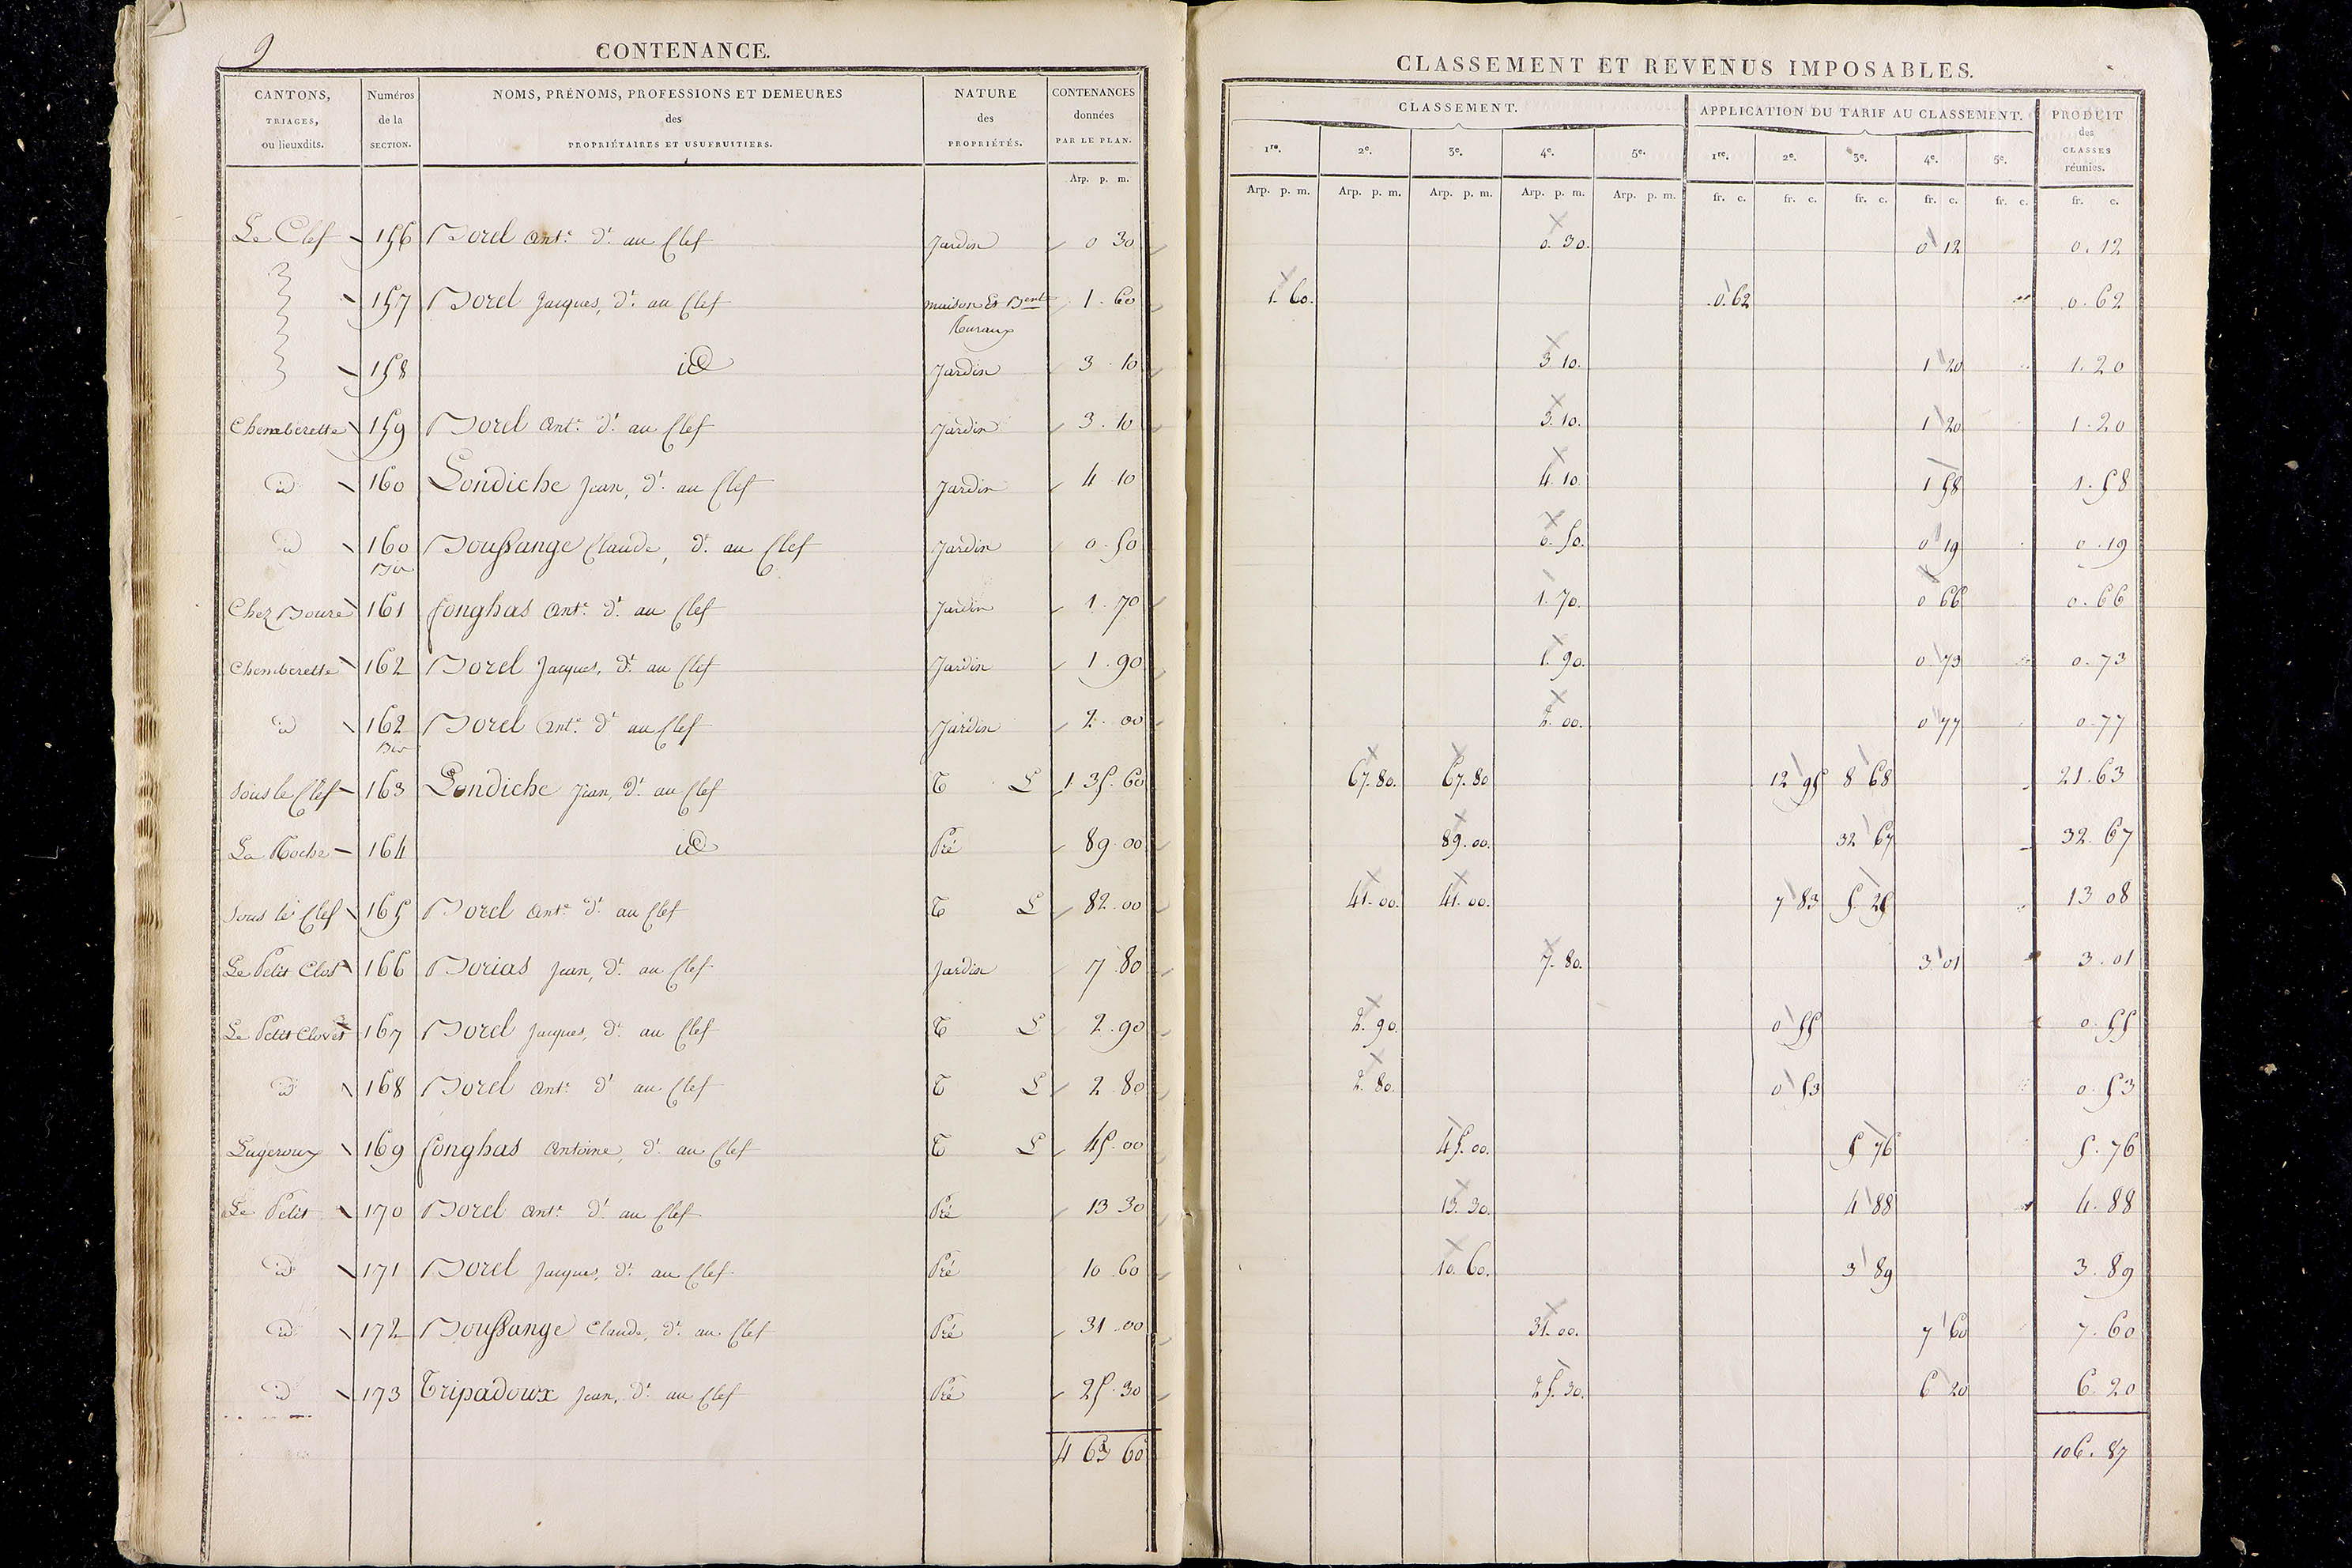 9
CONTENANCE.
CANTONS, TRIAGES, ou lieuxdits. | Numéros de la SECTION. | NOMS, PRÉNOMS, PROFESSIONS ET DEMEURES des PROPRIÉTAIRES ET USUFRUITIERS. | NATURE des PROPRIÉTÉS. | CONTENANCES données PAR LE PLAN.
Arp. p. m.
CLASSEMENT ET REVENUS IMPOSABLES.
CLASSEMENT. | APPLICATION DU TARIF AU CLASSEMENT. | PRODUIT des CLASSES réunies.
1re. 2e. 3e. 4e. 5e. 1re. 2e. 3e. 4e. 5e.
Arp. p. m. Arp. p. m. Arp. p. m. Arp. p. m. Arp. p. m. fr. c. fr. c. fr. c. fr. c. fr. c. fr. c.
Le Clef 156 Borel Ant.e d.t au Clef Jardin 0 30 0.30. 0 12 0.12
157 Borel Jacques, d.t au Clef maison Et Bent Ruraux 1.60 1.60. 0.62 0.62
158 id Jardin 3.10 3 10. 1 20 1.20
Chemberette 159 Borel Ant.e d.t au Clef Jardin 3.10 3.10. 1 20 1.20
id 160 Londiche Jean, d.t au Clef Jardin 4 10 4.10. 1 58 1.58
id 160 Bis Boussange Claude, d.t au Clef Jardin 0.50 0.50. 0 19 0.19
Chez Boure 161 Conghas Ant.e d.t au Clef Jardin 1.70 1.70. 0 66 0.66
Chemberette 162 Borel Jacques, d.t au Clef Jardin 1.90 1.90. 0 73 0.73
id 162 Bis Borel Ant.e d.t au Clef Jardin 2.00 2.00. 0 77 0.77
Sous le Clef 163 Londiche Jean, d.t au Clef T L 135.60 67.80. 67.80 12 95 8 68 21.63
La Roche 164 id Pré 89.00 89.00. 32 67 32.67
Sous le Clef 165 Borel Ant.e d.t au Clef T L 82.00 41.00. 41.00. 7 83 5 25 13 08
Le Petit Clos 166 Borias Jean, d.t au Clef Jardin 7 80 7.80. 3 01 3.01
Le Petit 167 Borel Jacques, d.t au Clef T L 2.90 2.90. 0 55 0.55
id 168 Borel Ant.e d.t au Clef T L 2.80 2.80. 0 53 0.53
Lugeroux 169 Conghas Antoine, d.t au Clef T L 45.00 45.00. 5 76 5.76
Le Petit 170 Borel Ant.e d.t au Clef Pré 13 30 13.30. 4 88 4.88
id 171 Borel Jacques, d.t au Clef Pré 10.60 10.60. 3 89 3.89
id 172 Boussange Claude, d.t au Clef Pré 31.00 31.00. 7 60 7.60
id 173 Tripadoux Jean, d.t au Clef Pré 25.30 25.30. 6 20 6.20
463 60 106.87